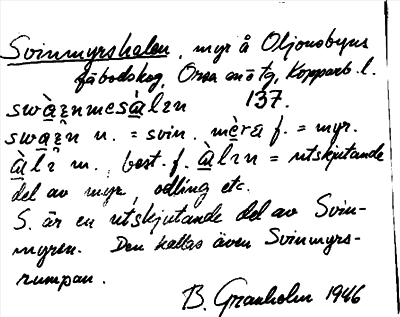 Svinmyrshalen, myr å Oljonsbyns
fäbodskog, Orsa
Kopparb. l.
137.
swä̀znmesàlɪn
n. = svin. mèra f. = myr.
m., best. f. àlɪn = utskjutande
del av myr, odling etc.
S. är en utskjutande del av Svin-
myren. Den kallas även Svinmyrs-
rumpan.
B. Granholm 1946